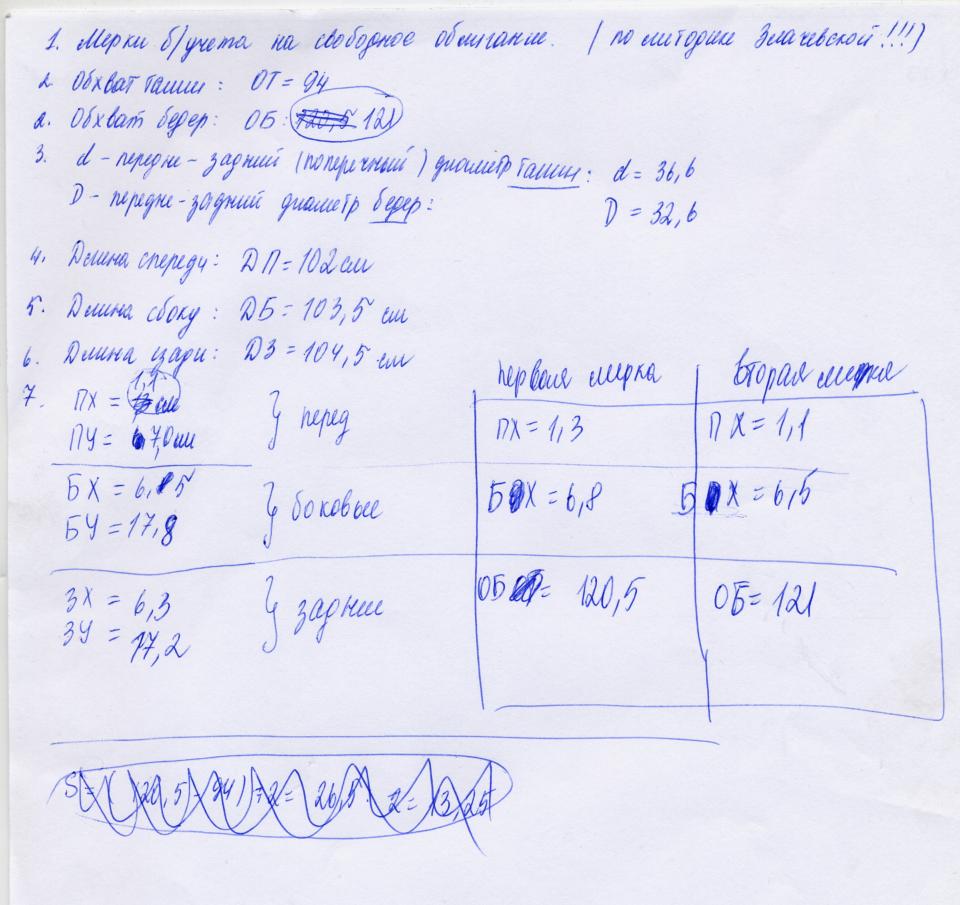 1. Мерки б/учета на свободное облигание. (по митодике Злачевской!!!)
2. Обхват талии: ОТ = 94
2. Обхват бедер: ОБ: 120,5 121
3. d - передне-задний (поперечный) диаметр талии: d = 36,6
D - передне-задний диаметр бедер: D = 32,6
4. Длина спереди: ДП = 102 см
5. Длина сбоку: ДБ = 103,5 см
6. Длина сзади: ДЗ = 104,5 см
7. ПХ = 1,1 см
ПУ = 7,0 см } перед
БХ = 6,5
БУ = 17,8 } боковые
ЗХ = 6,3
ЗУ = 17,2 } задние
первая мирка вторая мирка
ПХ = 1,3 ПХ = 1,1
БХ = 6,8 БХ = 6,5
ОБ = 120,5 ОБ = 121
S = (120,5 - 94) : 2 = 26,5 : 2 = 13,25